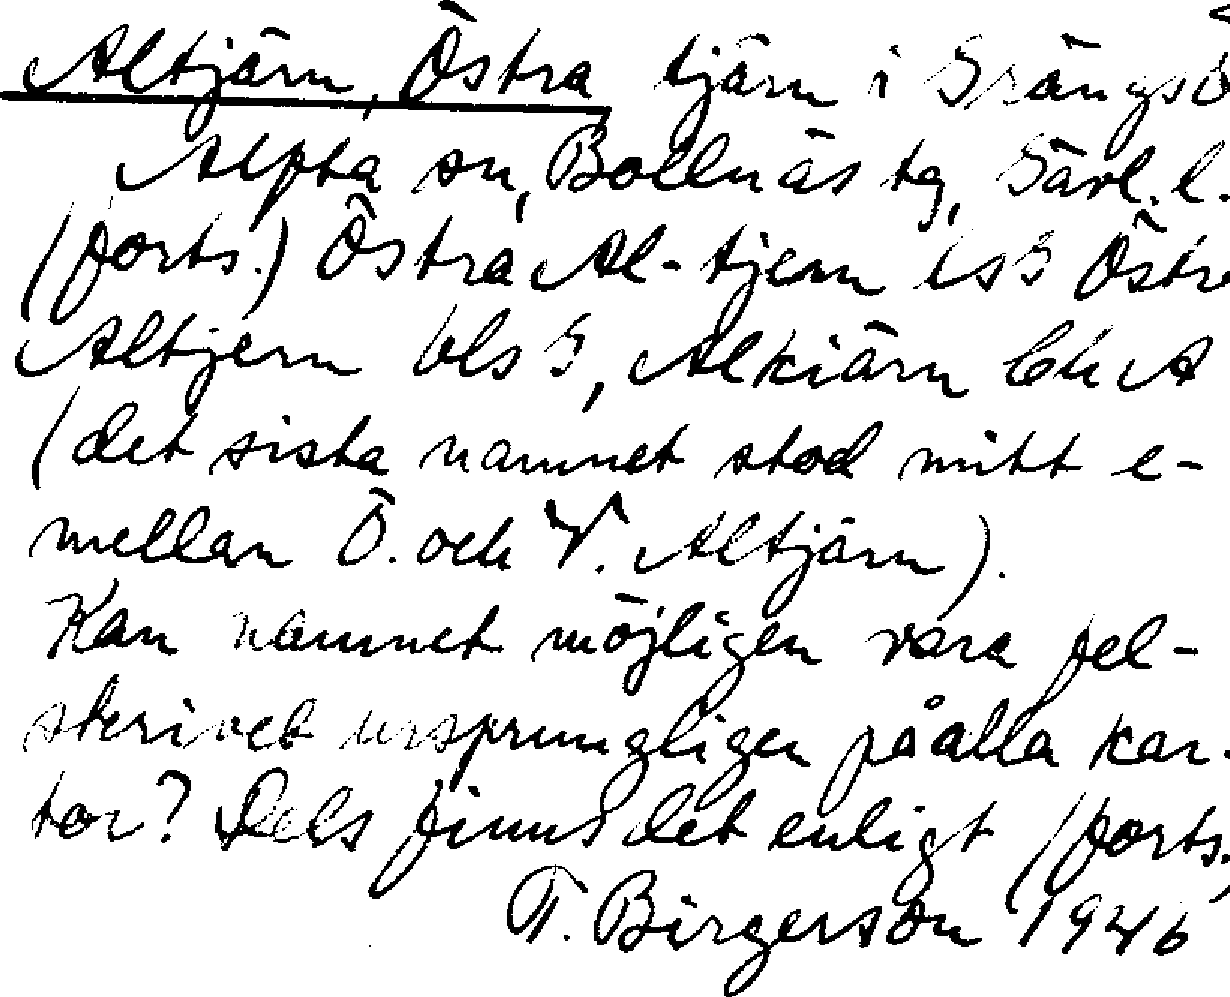 Altjärn, Östra tjärn i Grängsb
Alfta sn, Bollnäs tg, Gävl. l.
(forts.) Östra Al-tjern lsG Östre
Altjern blsG, Alkiärn Ch A
(det sista namnet stod mitt e-
mellan Ö. och V. Altjärn).
Kan namnet möjligen vara fel-
skrivet ursprungligen på alla kar-
tor? Dels finns det enligt (forts.)
T. Birgerson 1946